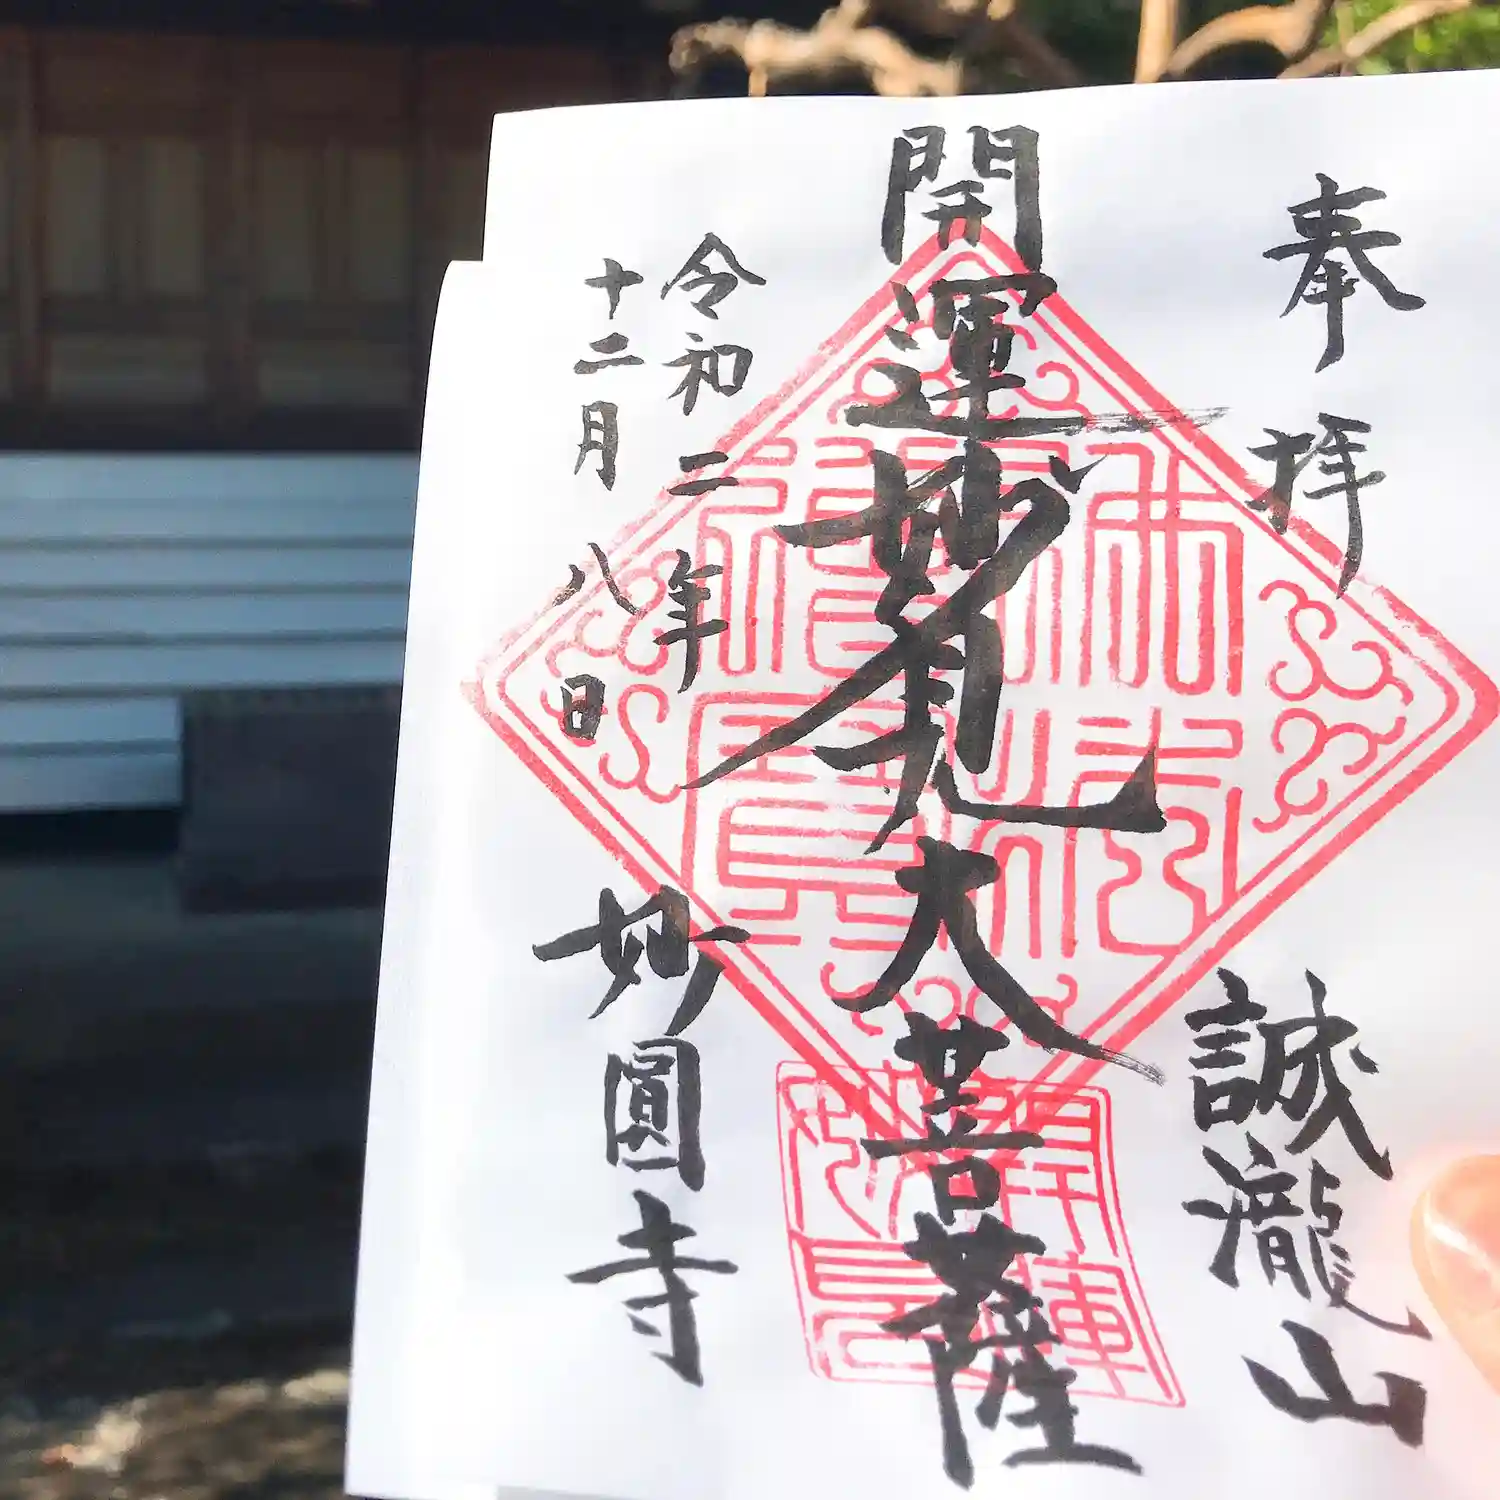 奉拝
誠瀧山
開運妙見大菩薩
令和二年
十二月八日
妙圓寺